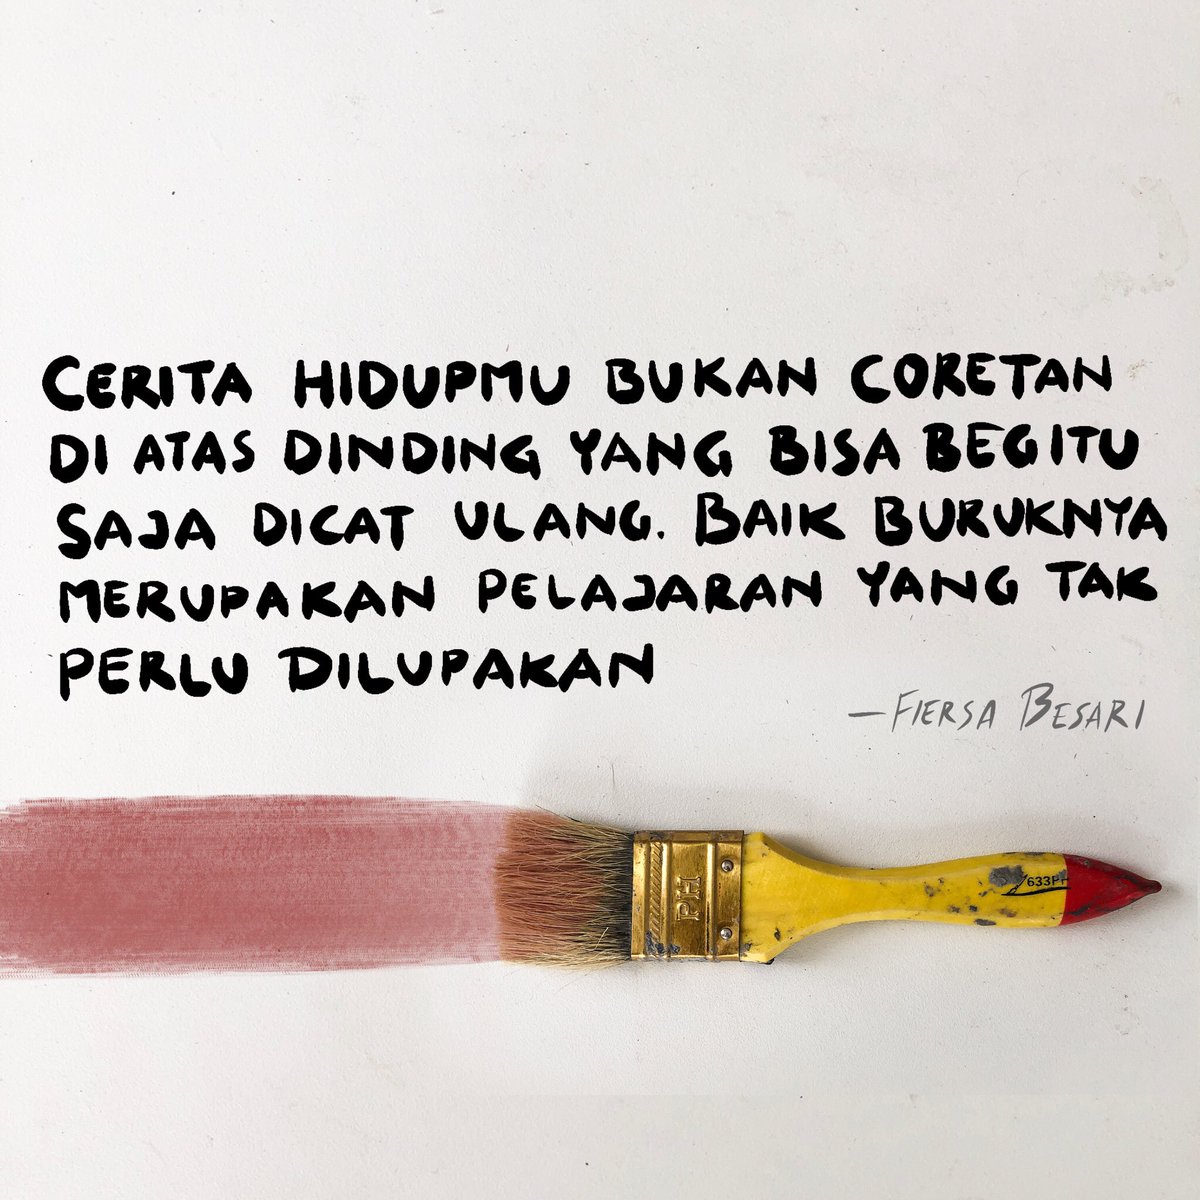 CERITA HIDUPMU BUKAN CORETAN
DI ATAS DINDING YANG BISA BEGITU
SAJA DICAT ULANG. BAIK BURUKNYA
MERUPAKAN PELAJARAN YANG TAK
PERLU DILUPAKAN
—FIERSA BESARI
PH
633PH